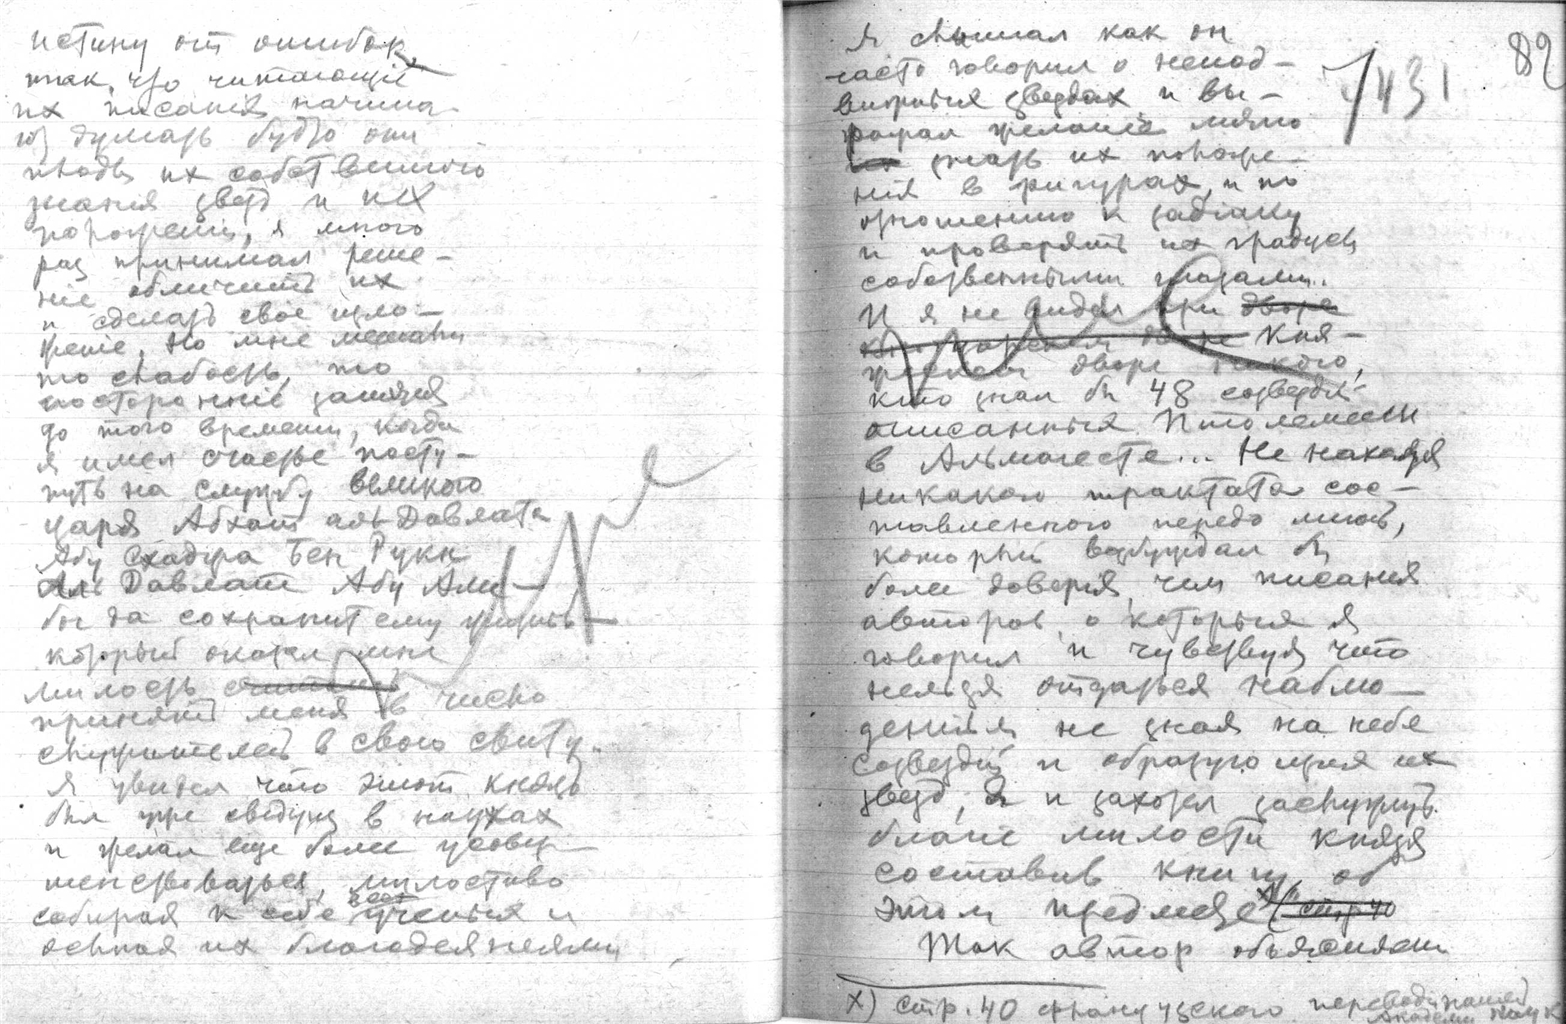 истину от ошибок
так, что читающие
их писания начина-
ют думать будто они
плоды их собственного
знания звезд и их
положений, я много
раз принимал реше-
ние обличить их
и сделать свое изло-
жение, но мне мешали
то слабость, то
посторонние занятия
до того времени, когда
я имел счастье посту-
пить на службу великого
царя Абхат аль Давлата
Абу Схадра Бен Рукн
Аль Давлат Абу Али –
бог да сохранит ему жизнь –
который оказал мне
милость
принять меня в число
служителей в свою свиту.
Я увидел что этот князь
был уже сведущ в науках
и желал еще более усовер-
шенствоваться, милостиво
собирая к себе всех ученых и
осыпая их благодеяниями,
82
1431
Я слышал как он
часто говорил о непод-
вижных звездах и вы-
ражал желание лично
знать их положе-
ния в фигурах, и по
отношению к зодиаку
и проверять их градусы
собственными глазами..
И я не видел при дворе
Кня-
жеском дворе никого,
кто знал бы 48 созвездий
описанных Птолемеем
в Альмагесте... Не находя
никакого трактата сос-
тавленного передо мной,
который возбуждал бы
более доверия, чем писания
авторов, о которых я
говорил и чувствуя что
нельзя отдаться наблю-
дениям не зная на небе
созвездий и образующих их
звезд, я и захотел заслужить
благие милости князя
составив книгу об
этом предмете x) (" стр 40
Так автор объясняет
x) стр. 40 французского перевода нашей
Академии Наук